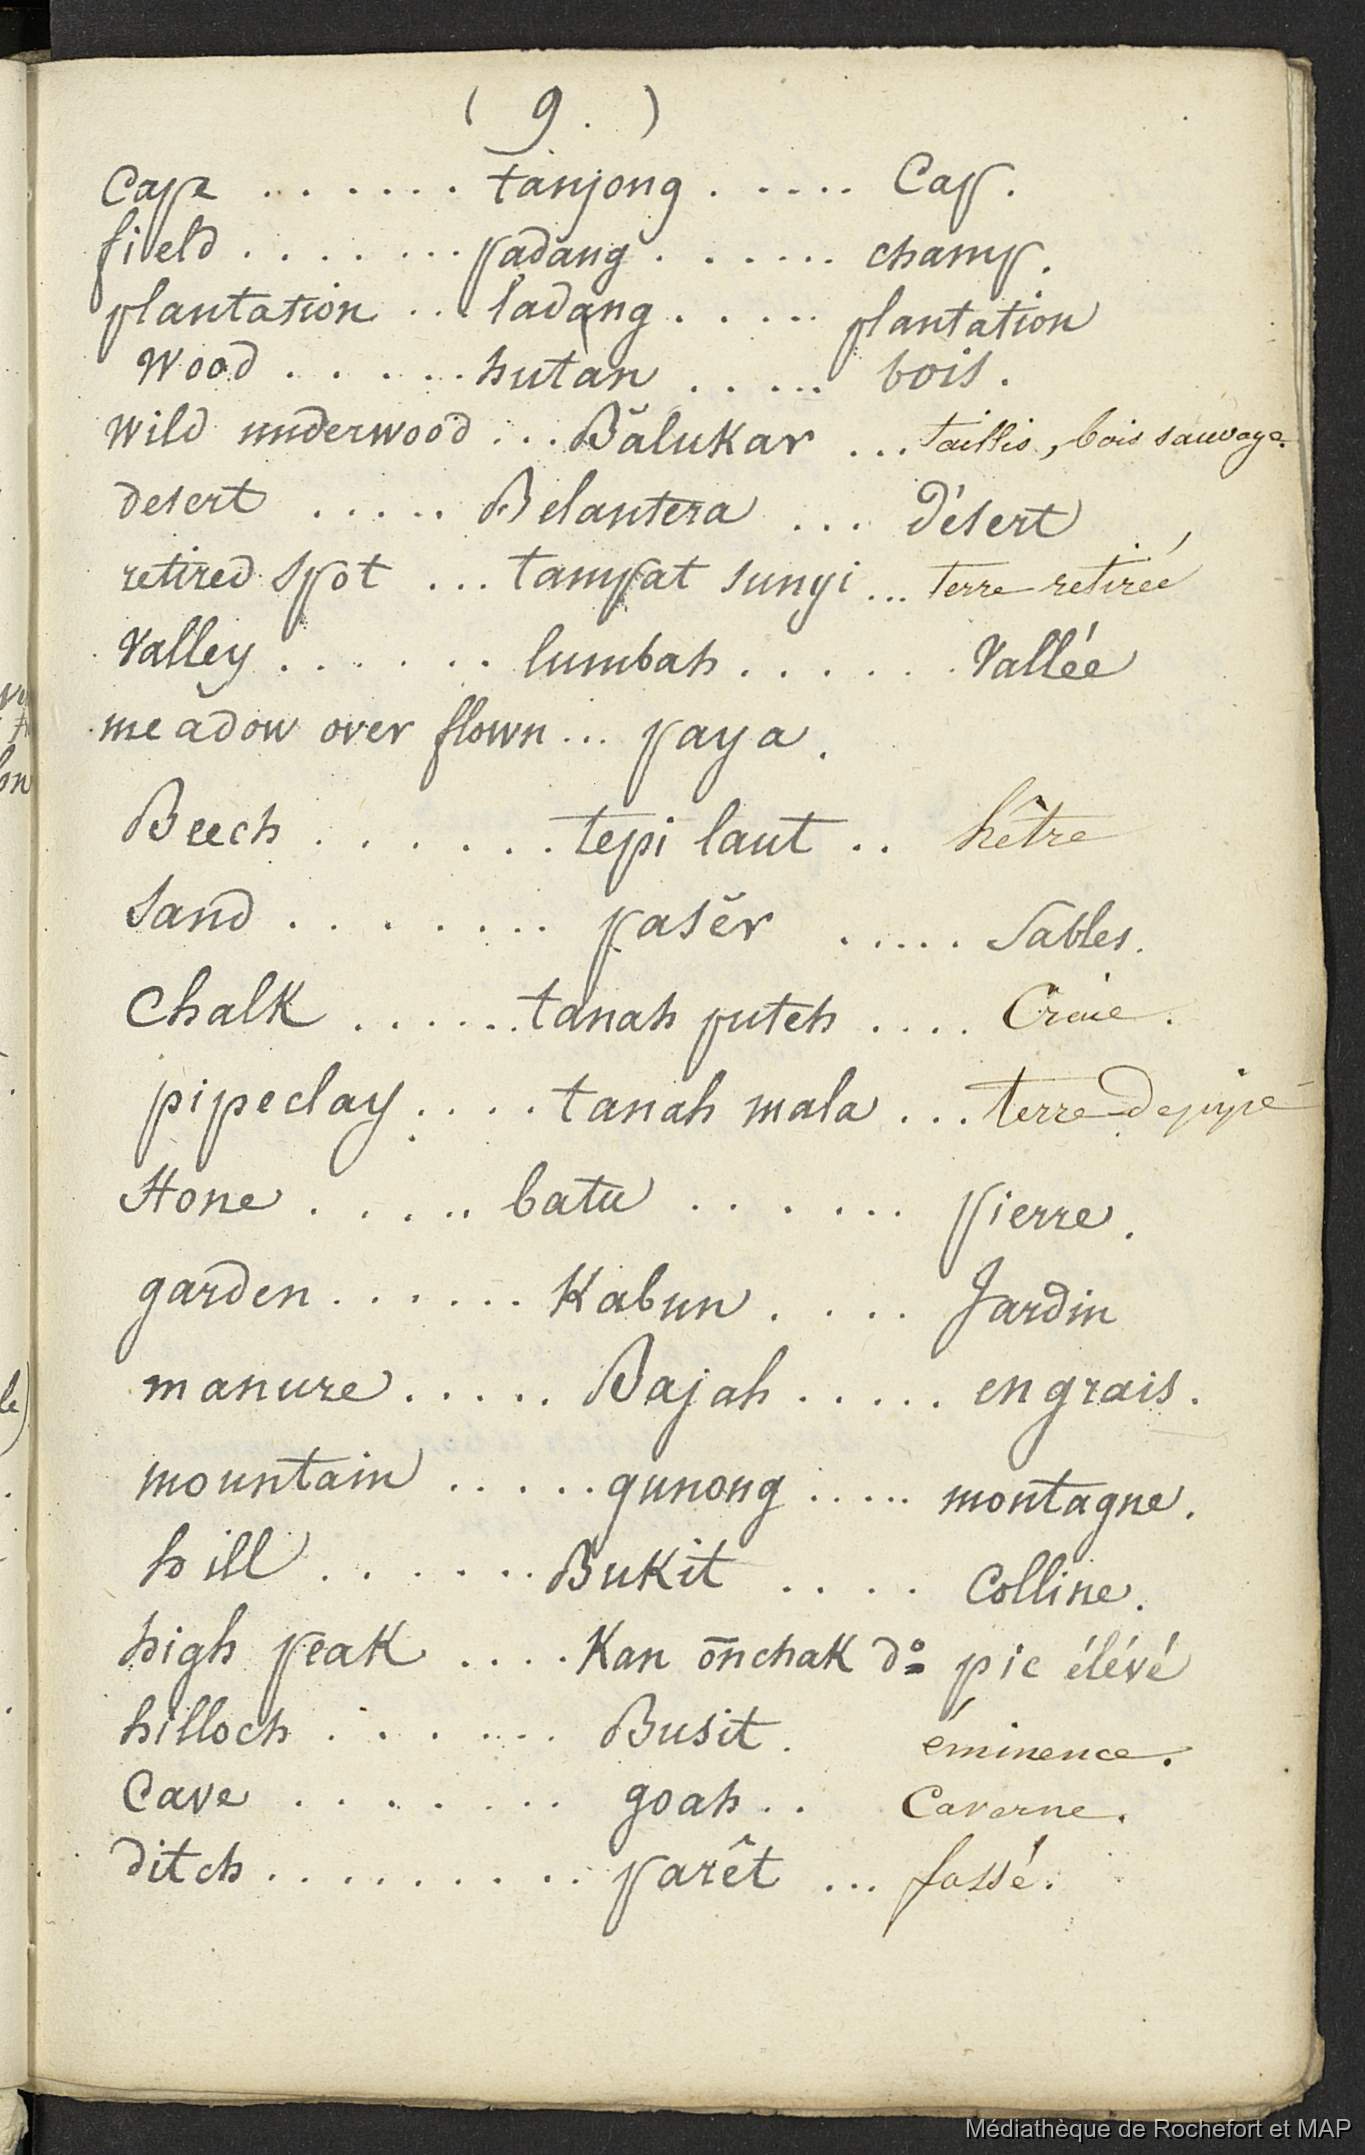 ( 9. )
Cape . . . . . . tanjong . . . . . Cap.
field . . . . . . . padang . . . . . . champ.
plantation . . . ladang . . . . . plantation
Wood . . . . . . hutan . . . . . bois.
Wild underwood . . . Bălukar . . . taillis, bois sauvage.
desert . . . . . Belantera . . . Désert
retired spot . . . tampat sunyi . . . terre retirée
Valley . . . . . . lumbah . . . . . . Vallée
meadow over flown . . . paya.
Beech . . . . . . tepi laut . . hêtre
Sand . . . . . . . pasĕr . . . . . Sables.
Chalk . . . . . . tanah puteh . . . . Craie.
pipeclay . . . . tanah mala . . . terre de pipe
Stone . . . . . batu . . . . . . pierre.
garden . . . . . . Kabun . . . . Jardin
manure . . . . . Bajah . . . . . engrais.
mountain . . . . . gunong . . . . . montagne.
hill . . . . . . Bukit . . . . Colline.
high peak . . . . Kan ōnchak do pic élévé
hilloch . . . . . . Busit. éminence.
Cave . . . . . . . goah . . Caverne.
ditch . . . . . . . . . parêt . . . fossé.
Médiathèque de Rochefort et MAP